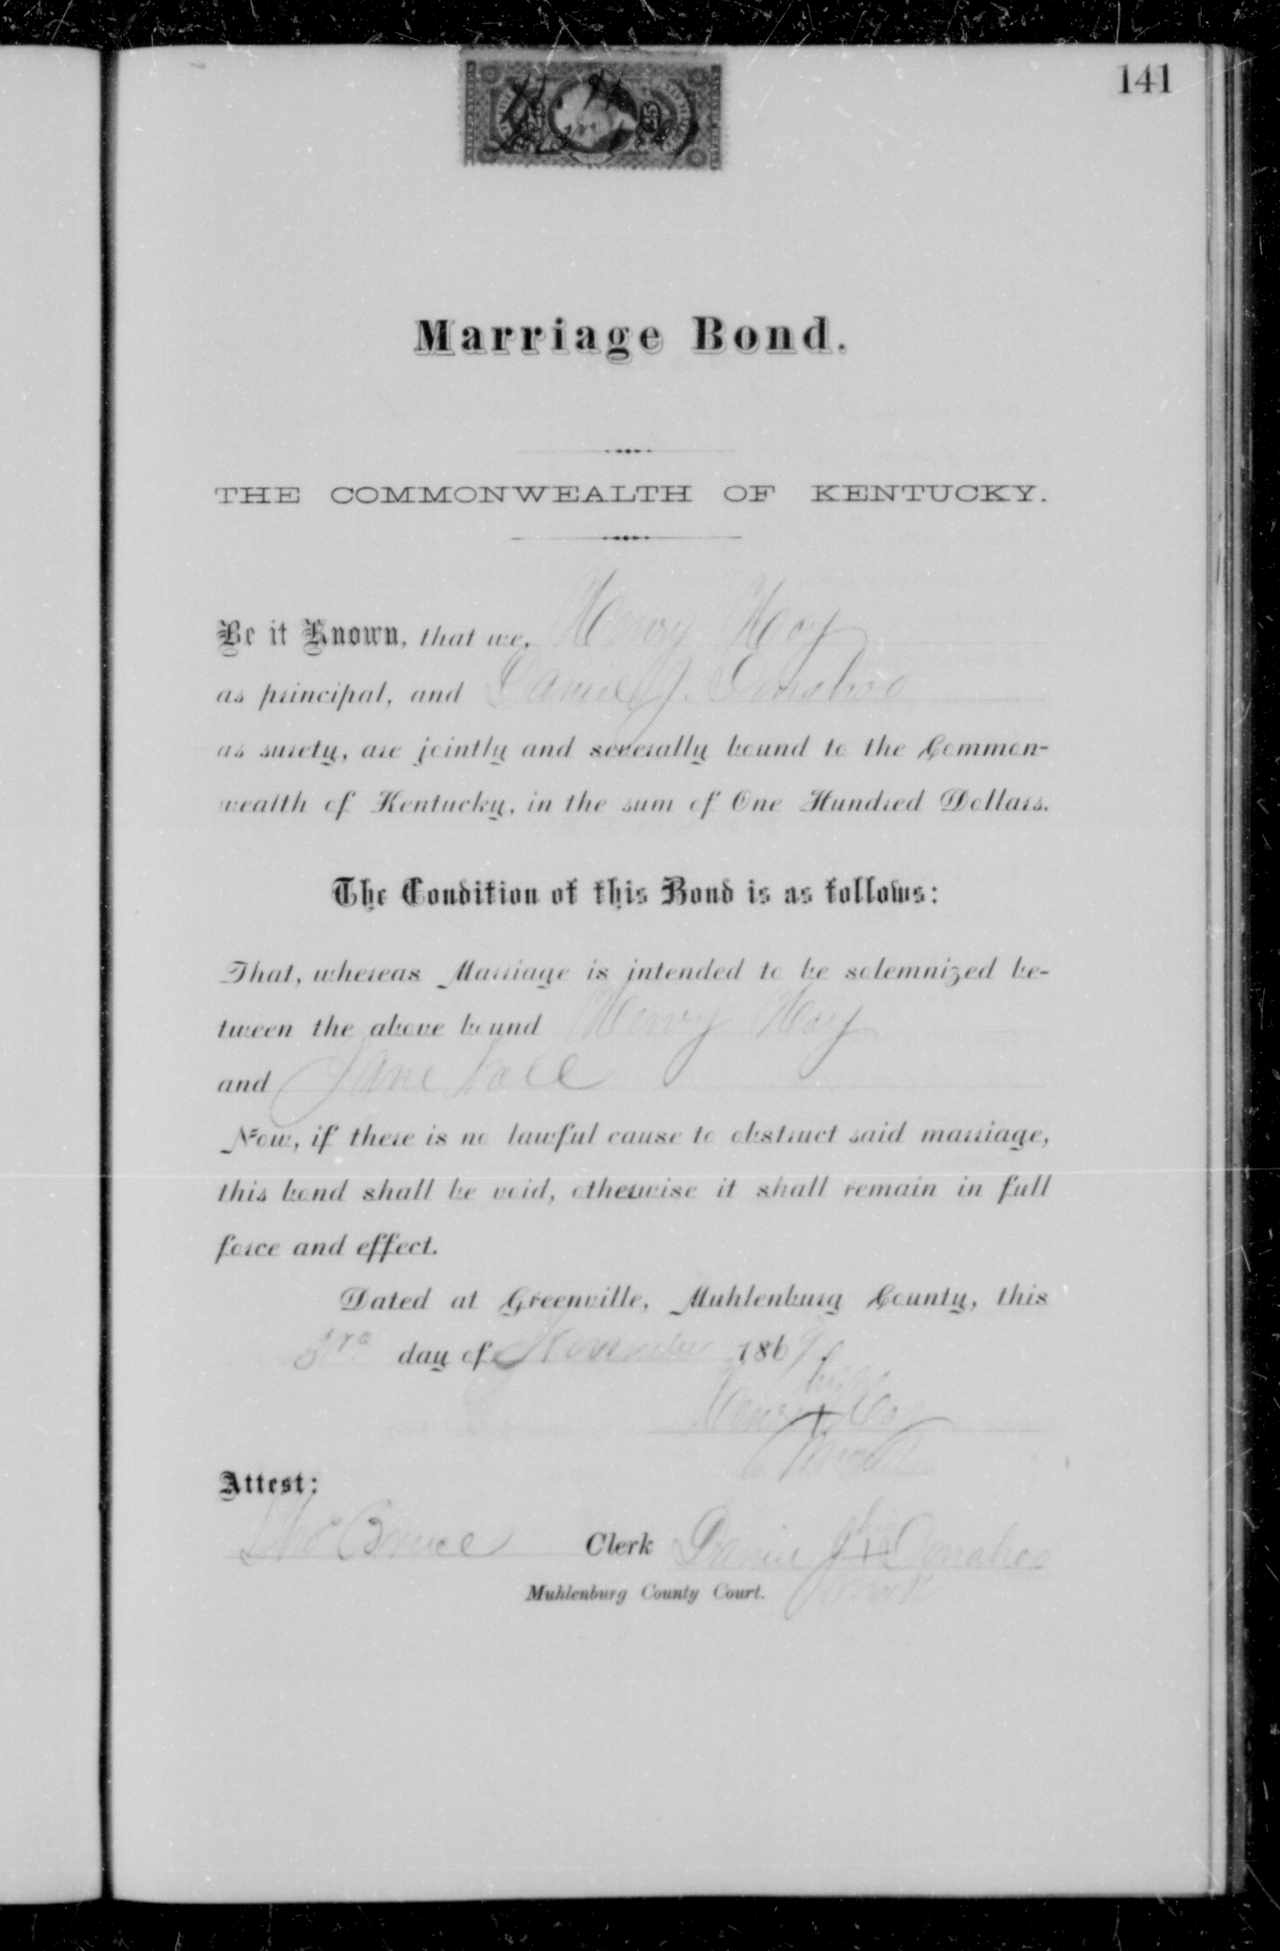 141
25
Marriage Bond.
THE COMMONWEALTH OF KENTUCKY.
Be it Known, that we, Henry Hoy
as principal, and Daniel J. Donahoo
as surety, are jointly and severally bound to the Common-
wealth of Kentucky, in the sum of One Hundred Dollars.
The Condition of this Bond is as follows:
That, whereas Marriage is intended to be solemnized be-
tween the above bound Henry Hoy
and Jane
Now, if there is no lawful cause to obstruct said marriage,
this bond shall be void, otherwise it shall remain in full
force and effect.
Dated at Greenville, Muhlenburg County, this
3rd day of November 1869
his
Henry + Hoy
mark
Attest:
Bruce Clerk Daniel J + Donahoo
his
mark
Muhlenburg County Court.